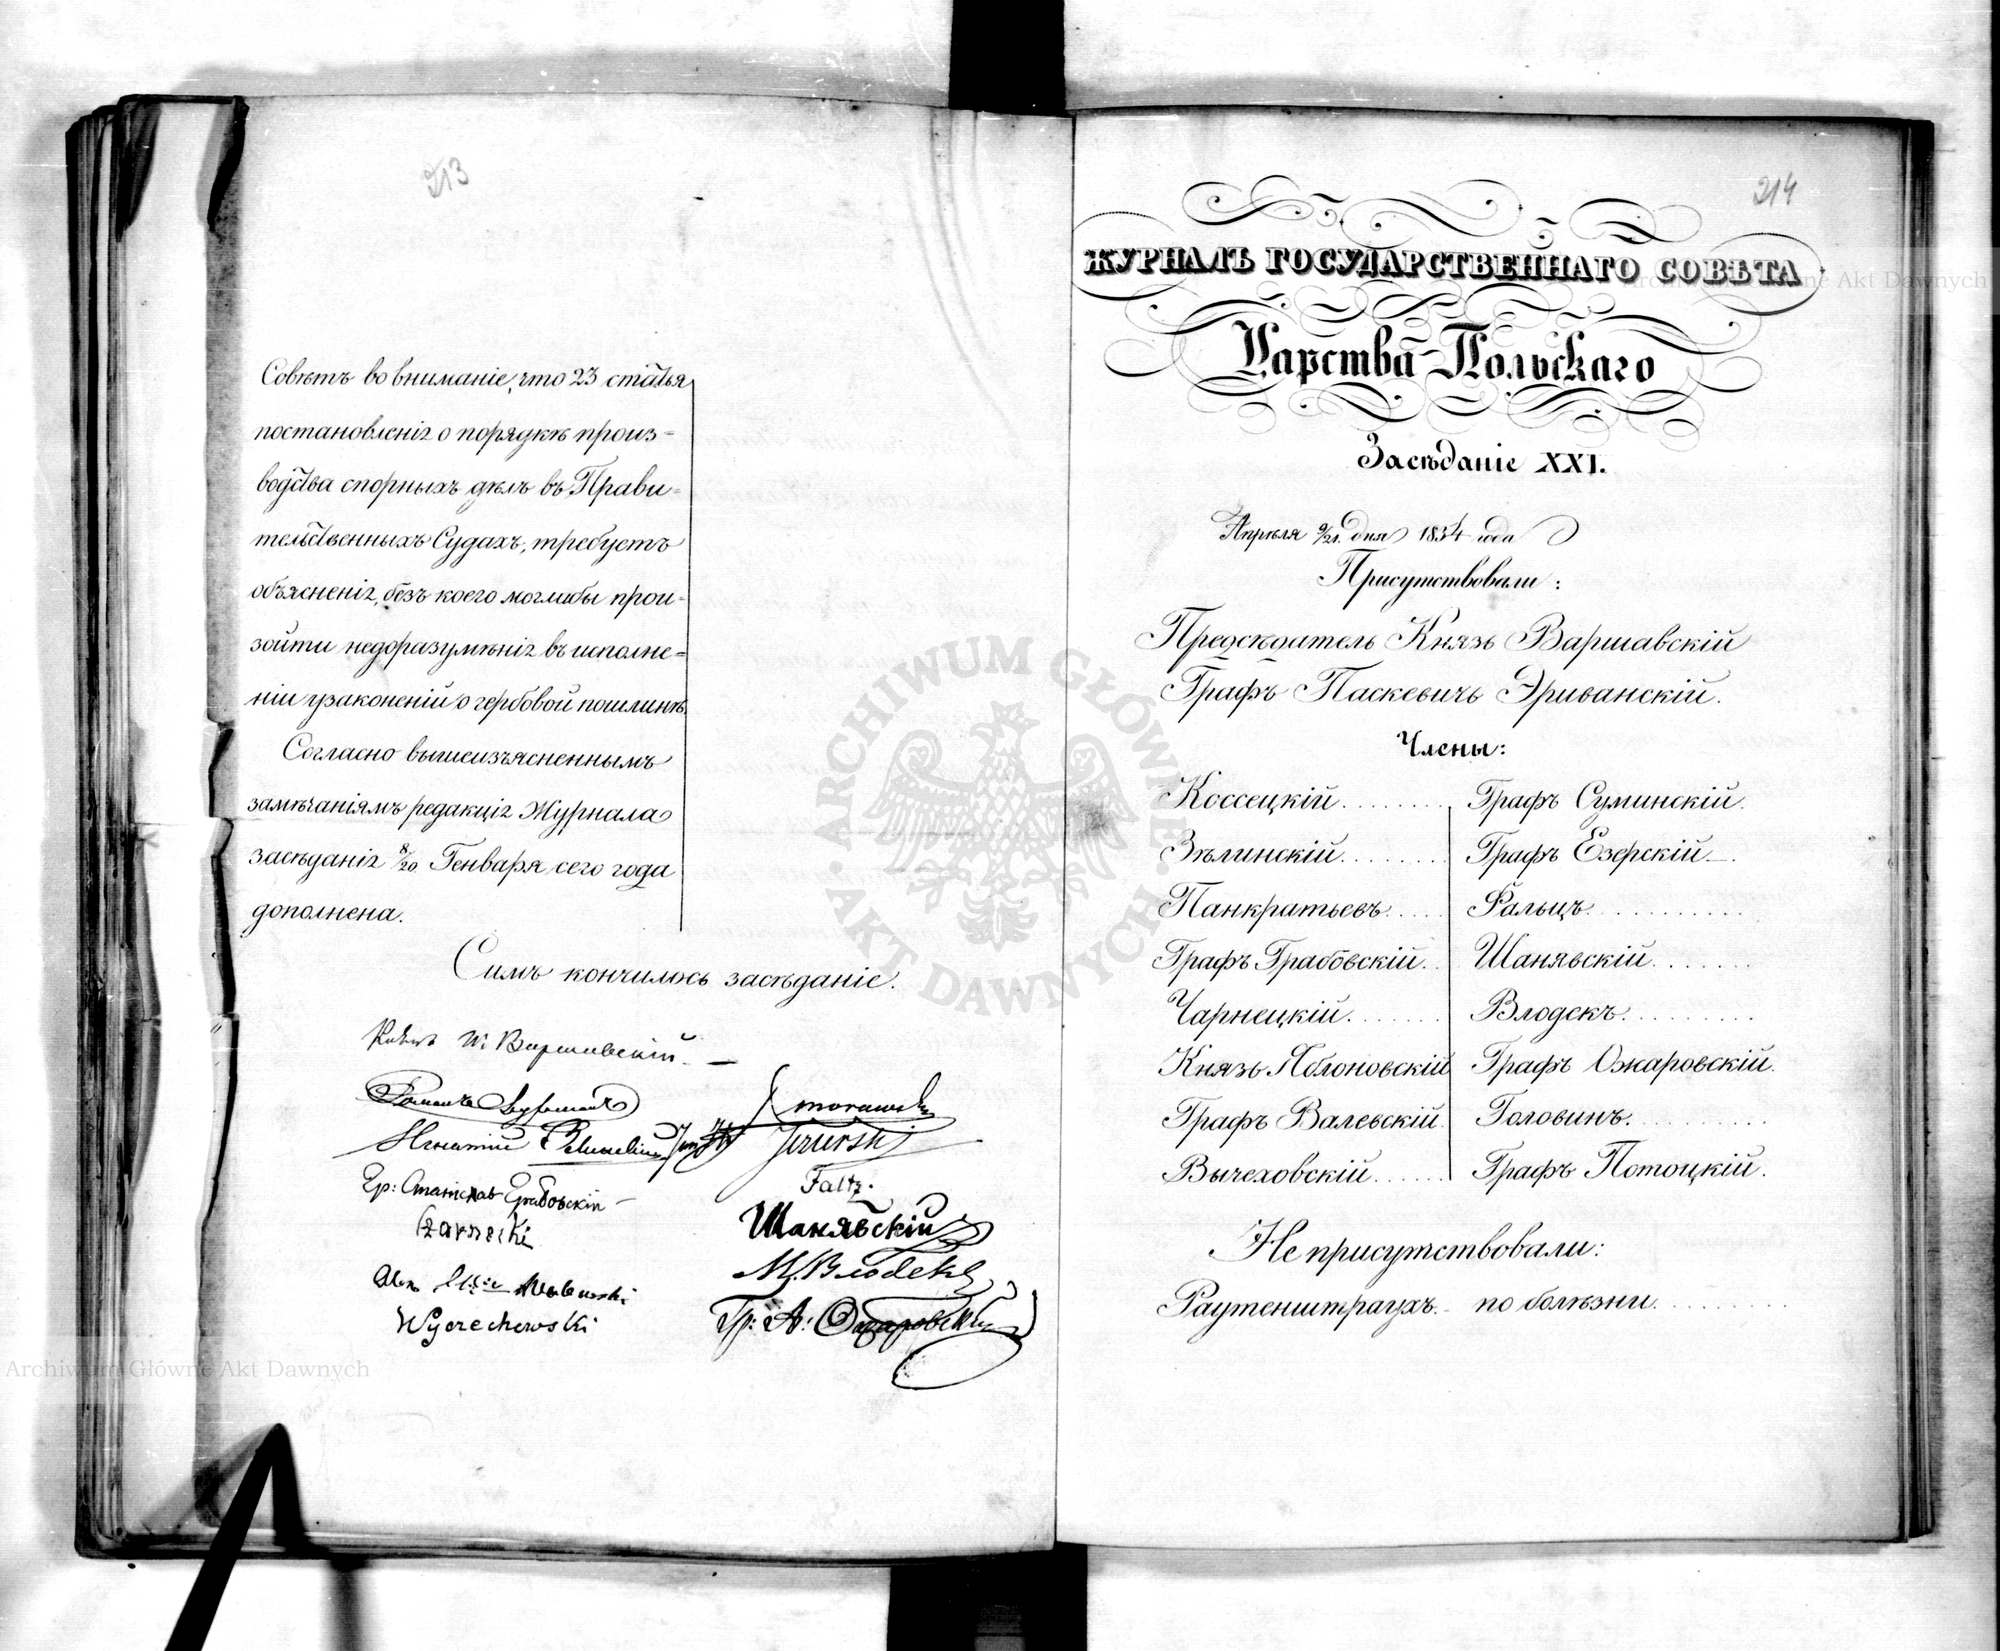 213
Совѣтъ во вниманіе, что 23 статья
постановленія о порядкѣ произ=
водства спорныхъ дѣлъ въ Прави=
тельственныхъ Судахъ, требуетъ
объясненія, безъ коего моглибы прои=
зойти недоразумѣнія въ исполне=
ніи узаконеній о гербовой пошлинѣ.
Согласно вышеизъясненнымъ
замѣчаніямъ редакція Журнала
засѣданія 8/20. Генваря сего года
дополнена.
Симъ кончилось засѣданіе.
Варшавскій
Morawski
Jezierski
Гр: Станиславъ Грабовскій
Faltz.
Czarnecki
Шанявскій
М. Влодекъ
Wyczechowski
Гр: А: Ожаровскій
214
ЖУРНАЛЪ ГОСУДАРСТВЕННАГО СОВѢТА
Царства Польскаго
Засѣданіе XXI.
Апрѣля 9/21. дня 1834 года
Присутствовали:
Предсѣдатель Князь Варшавскій
Графъ Паскевичь Эриванскій.
Члены:
Коссецкій........ Графъ Суминскій.
Зѣлинскій........ Графъ Езерскій.
Панкратьевъ..... Фальцъ.
Графъ Грабовскій.. Шанявскій.......
Чарнецкій....... Влодекъ.........
Князь Яблоновскій Графъ Ожаровскій.
Графъ Валевскій. Головинъ.
Вычеховскій...... Графъ Потоцкій.
Не присутствовали:
Раутенштраухъ.. по болѣзни.
ARCHIWUM GŁÓWNE AKT DAWNYCH
Archiwum Główne Akt Dawnych
Archiwum Główne Akt Dawnych